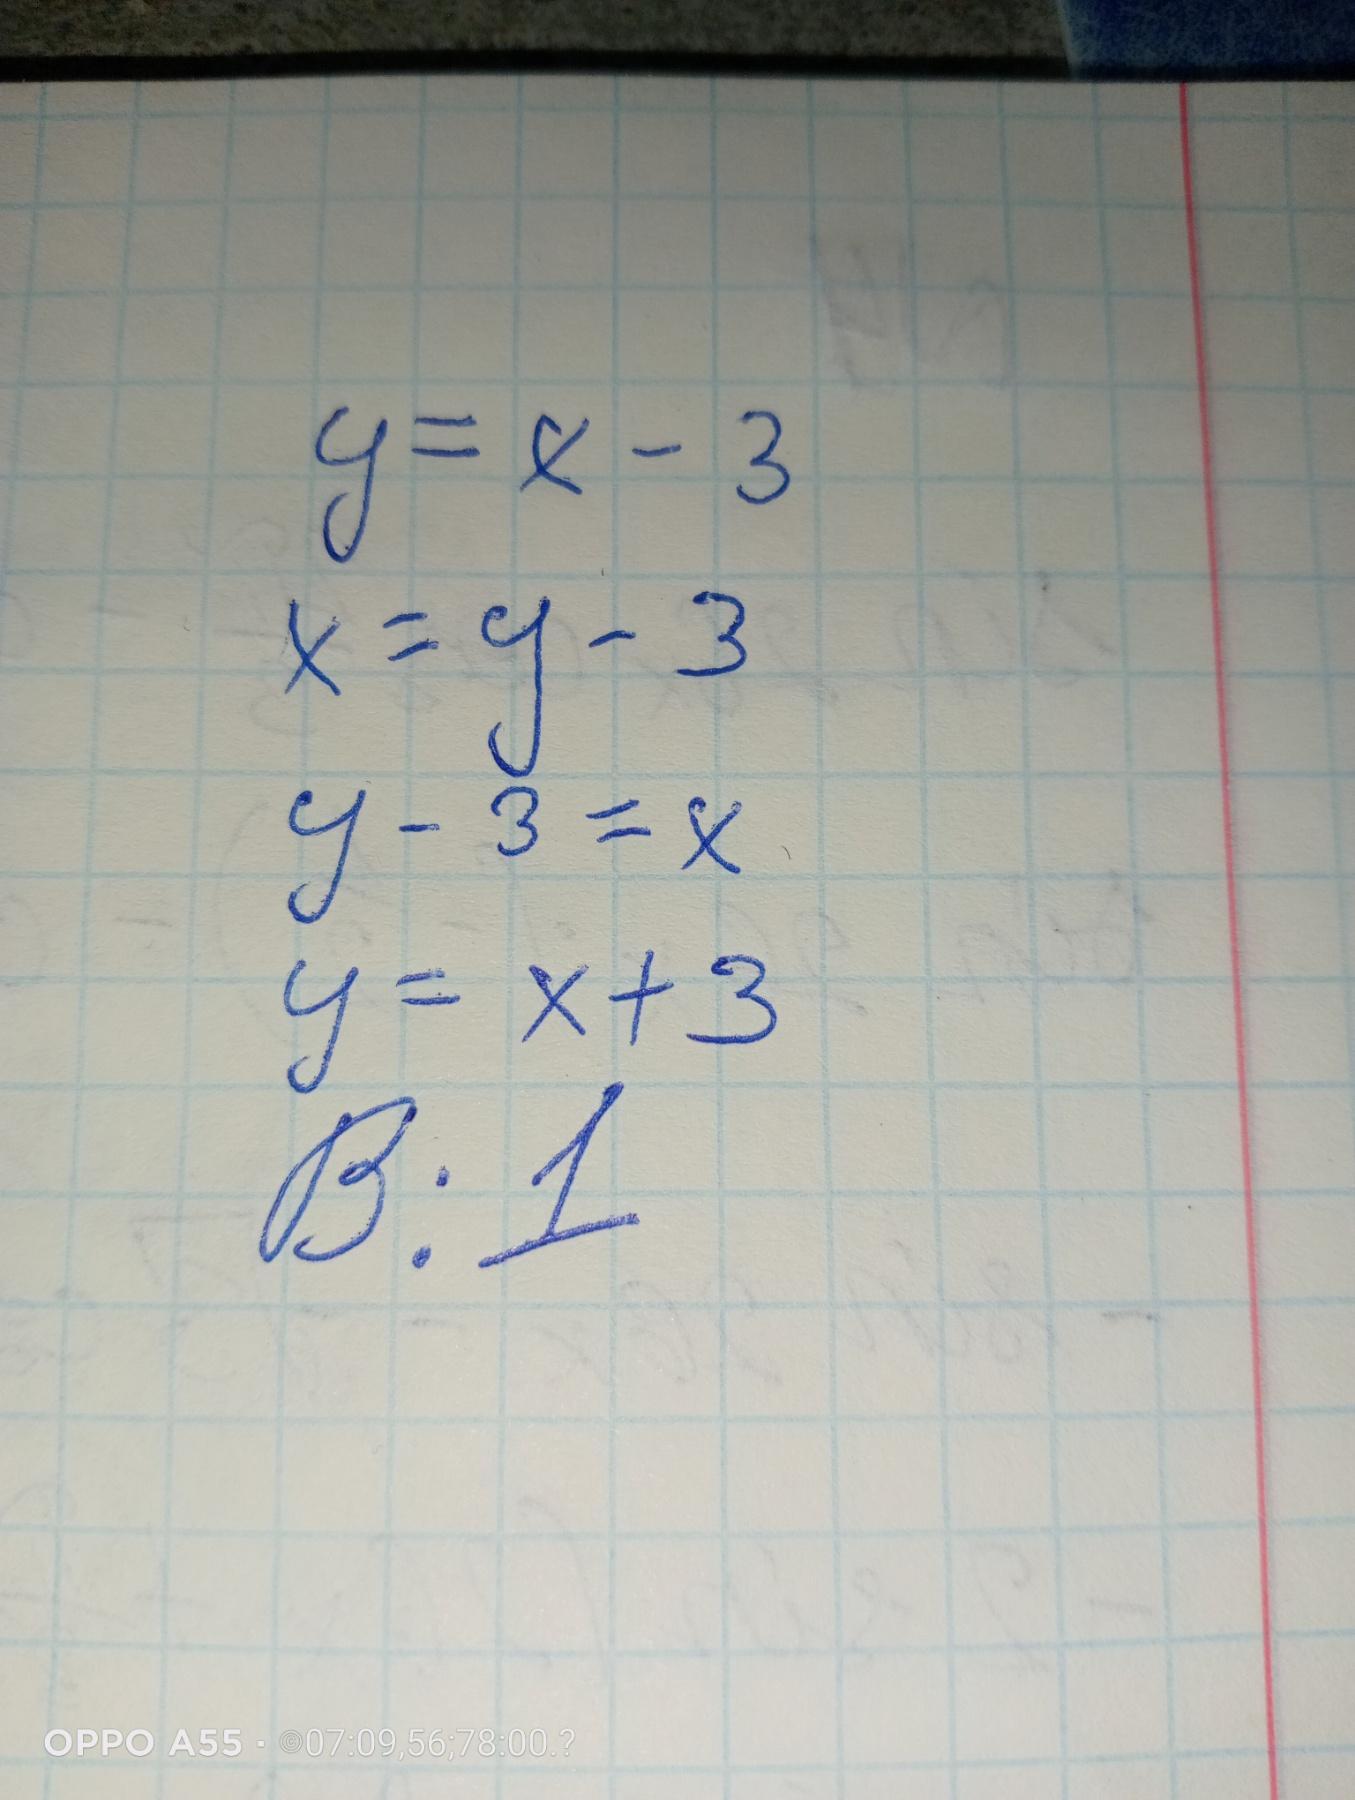 y = x - 3
x = y - 3
y - 3 = x
y = x + 3
В: 1
OPPO A55 · ©07:09,56;78:00.?